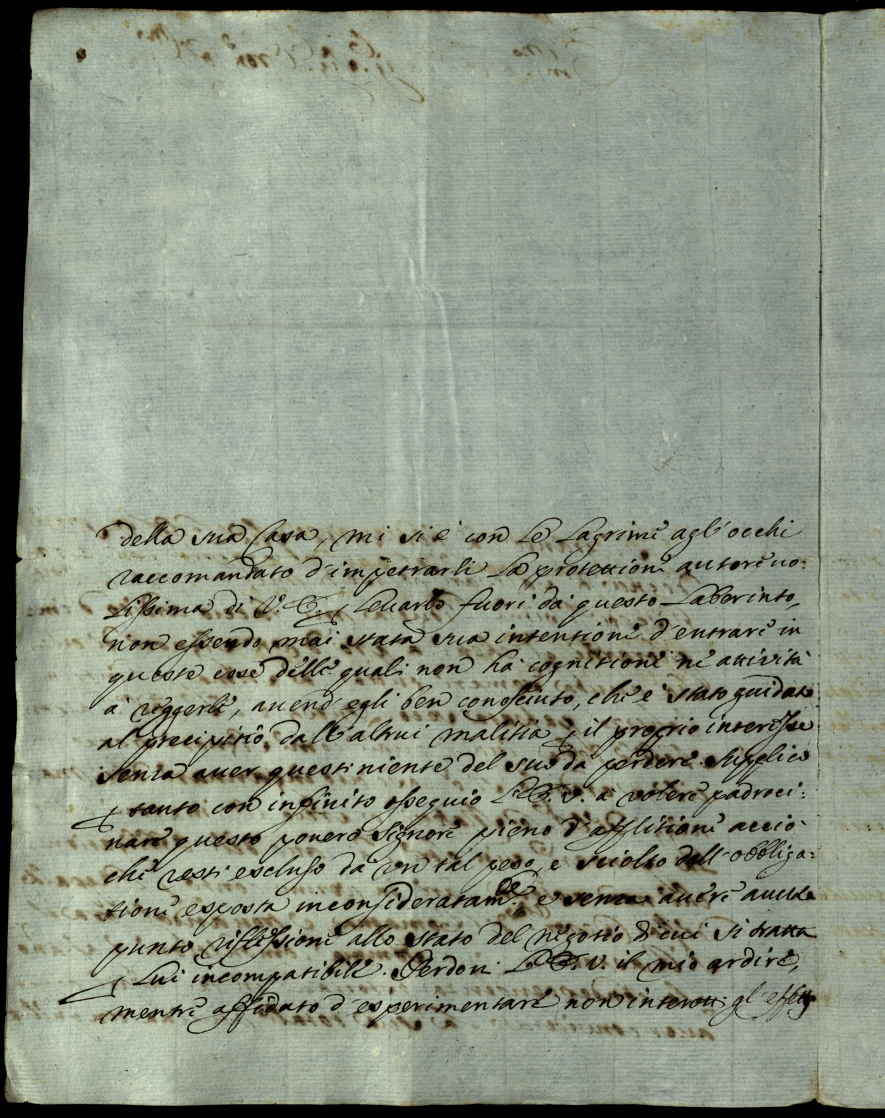 della sua Casa, mi si è con le Lagrime agl'occhi
raccomandato d'impetrarli la protettione autoreuo:
lissima di V.E. p Leuarlo fuori da questo Laberinto,
non essendo mai stata sua intentione d'entrare in
queste cose delle quali non hà cognitione nè attività
à reggerle, auend'egli ben conosciuto, che è stato guidato
al precipitio dall'altrui malitia p il proprio interesse
senza auer questi niente del suo da perdere. Supplico
p tanto con infinito ossequio L'E.V. à volere padroci:
nare questo pouero Signore pieno d'afflitione acciò
che resti escluso da un tal peso, e sciolto dall'obbliga:
tione esposta inconsideratam.te e senza auere auuto
punto riflessione allo stato del negotio di cui si tratta
p Lui incompatibile. Perdoni L'E.V. il mio ardire,
mentre affidato d'esperimentare non interott: gl'effetti